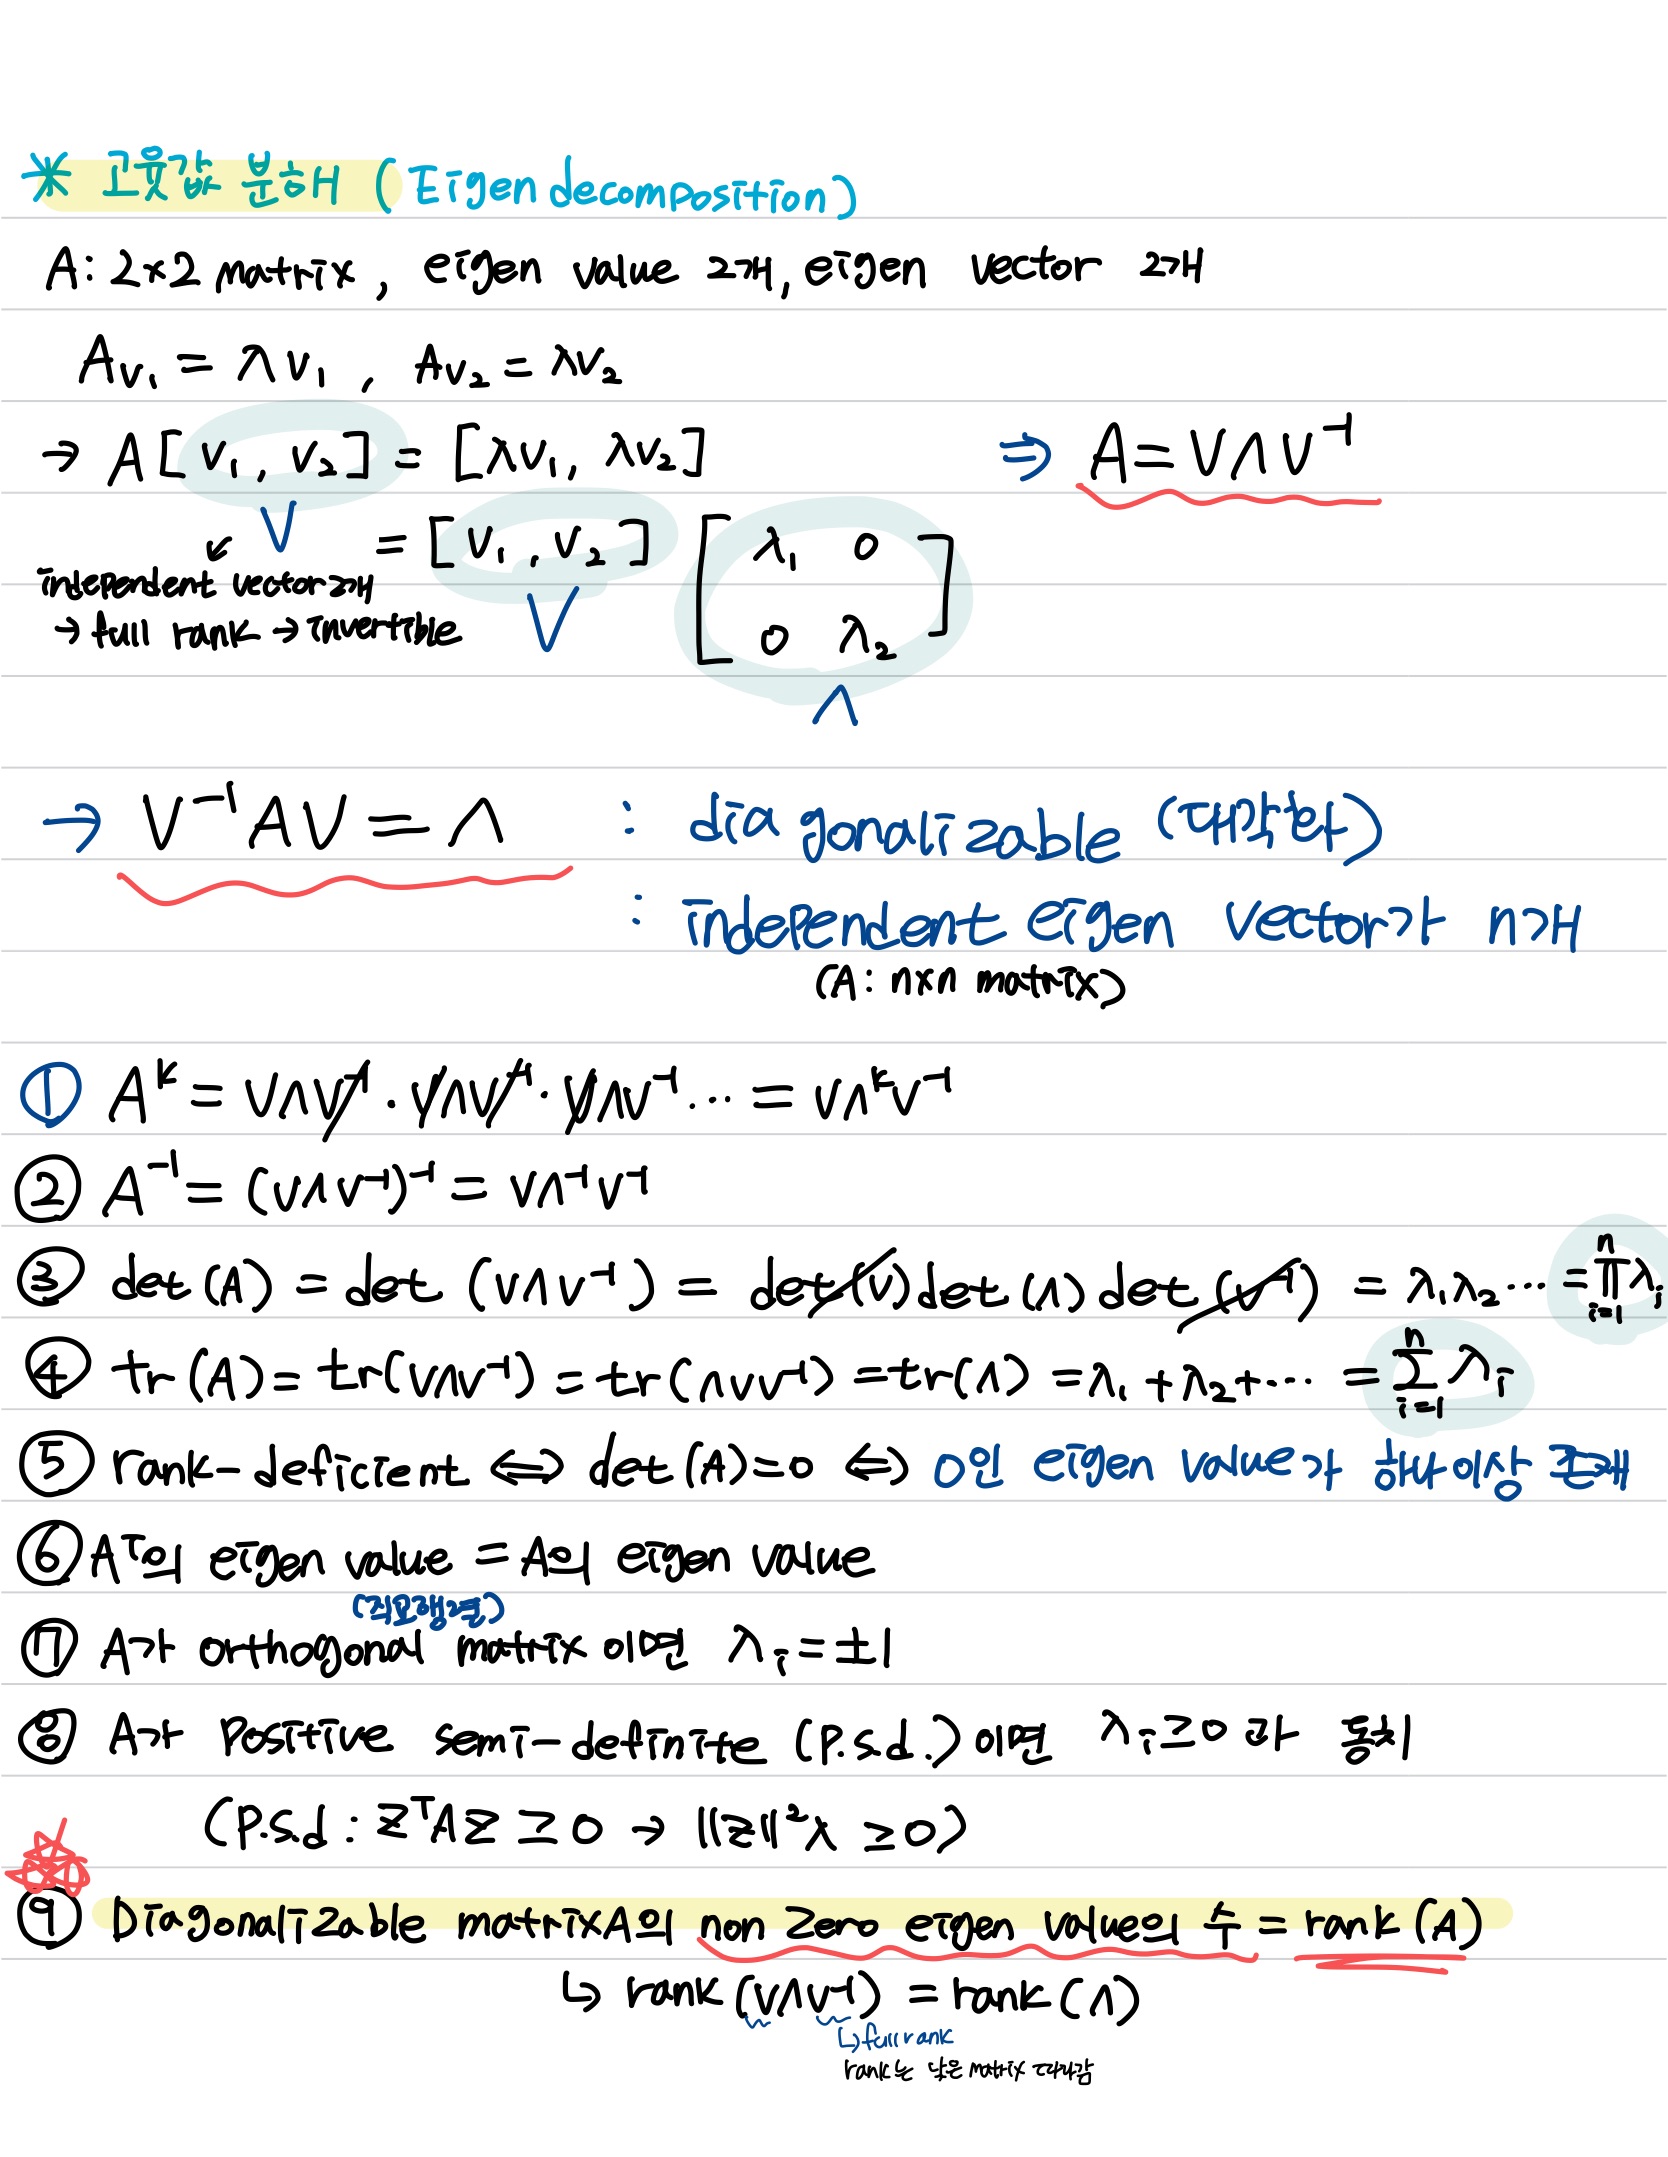 * 고윳값 분해 (Eigen decomposition)
A: 2×2 matrix, eigen value 2개, eigen vector 2개
Av₁ = λv₁ , Av₂ = λv₂
→ A[v₁, v₂] = [λv₁, λv₂] ⇒ A = VΛV⁻¹
V
= [v₁, v₂] [λ₁ 0
0 λ₂]
independent vector 2개
→ full rank → invertible
V
Λ
→ V⁻¹AV = Λ : diagonalizable (대각화)
: independent eigen vector가 n개
(A: n×n matrix)
① Aᵏ = VΛV⁻¹ · VΛV⁻¹ · VΛV⁻¹ ... = VΛᵏV⁻¹
② A⁻¹ = (VΛV⁻¹)⁻¹ = VΛ⁻¹V⁻¹
③ det(A) = det (VΛV⁻¹) = det(V)det(Λ)det(V⁻¹) = λ₁λ₂... = ∏ⁿᵢ₌₁ λᵢ
④ tr(A) = tr(VΛV⁻¹) = tr(ΛVV⁻¹) = tr(Λ) = λ₁+λ₂+... = ∑ⁿᵢ₌₁ λᵢ
⑤ rank-deficient ⇔ det(A)=0 ⇔ 0인 eigen value가 하나이상 존재
⑥ Aᵀ의 eigen value = A의 eigen value
(직교행렬)
⑦ A가 orthogonal matrix 이면 λᵢ = ±1
⑧ A가 Positive semi-definite (P.s.d.) 이면 λᵢ ≥ 0 과 동치
(P.s.d : zᵀAz ≥ 0 → ||z||²λ ≥ 0)
⑨ Diagonalizable matrix A의 non zero eigen value의 수 = rank(A)
↳ rank(VΛV⁻¹) = rank(Λ)
↳ full rank
rank는 낮은 matrix 따라감